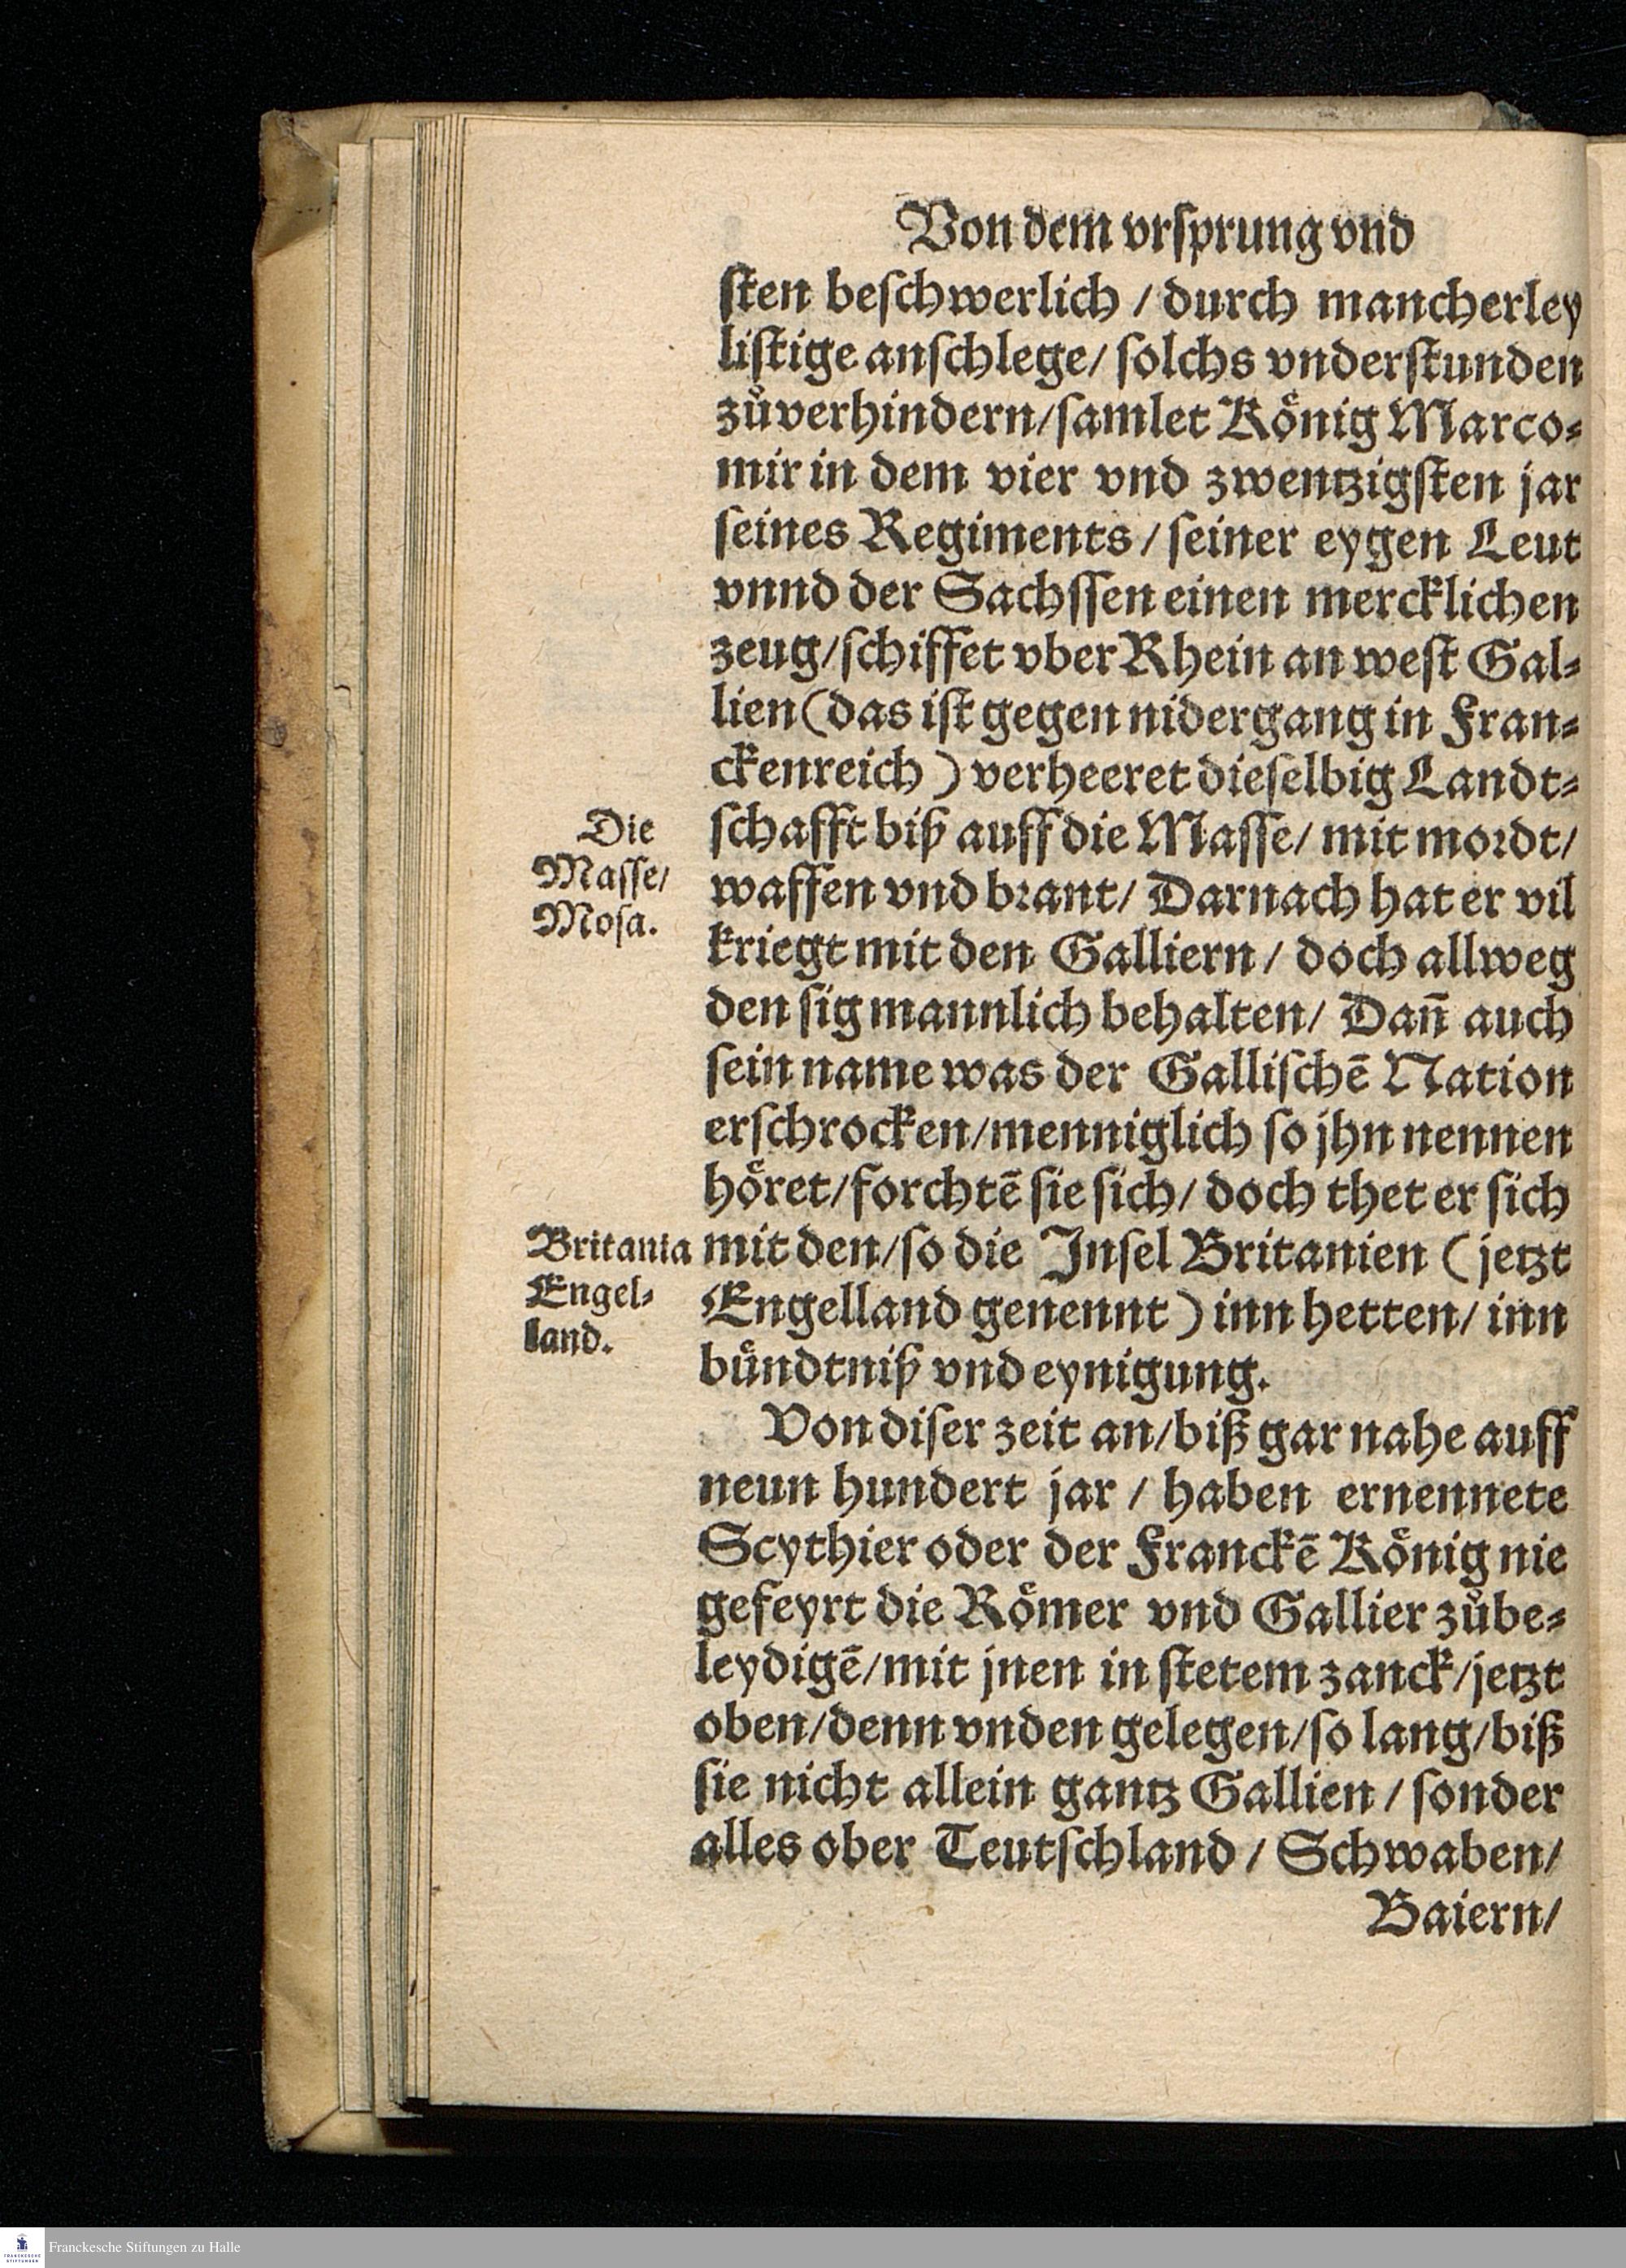 Von dem vrsprung vnd
ſten beſchwerlich / durch mancherley
liſtige anſchlege / ſolchs vnderſtunden
zuͦverhindern / ſamlet Koͤnig Marco⸗
mir in dem vier vnd zwentzigſten jar
ſeines Regiments / ſeiner eygen Leut
vnnd der Sachſſen einen mercklichen
zeug / ſchiffet vber Rhein an weſt Gal⸗
lien (das iſt gegen nidergang in Fran⸗
ckenreich) verheeret dieſelbig Landt⸗
Die
Maſſe /
Moſa.
ſchafft biß auff die Maſſe / mit mordt /
waffen vnd brant / Darnach hat er vil
kriegt mit den Galliern / doch allweg
den ſig mannlich behalten / Dañ auch
ſein name was der Galliſchẽ Nation
erſchrocken / menniglich ſo jhn nennen
hoͤret / forchtẽ ſie ſich / doch thet er ſich
Britania
Engel⸗
land.
mit den / ſo die Inſel Britanien (jetzt
Engelland genennt) inn hetten / inn
buͤndtniß vnd eynigung.
Von diſer zeit an / biß gar nahe auff
neun hundert jar / haben ernennete
Scythier oder der Franckẽ Koͤnig nie
gefeyrt die Roͤmer vnd Gallier zuͦbe⸗
leydigẽ / mit jnen in ſtetem zanck / jetzt
oben / denn vnden gelegen / ſo lang / biß
ſie nicht allein gantz Gallien / ſonder
alles ober Teutſchland / Schwaben /
Baiern /
Franckesche Stiftungen zu Halle